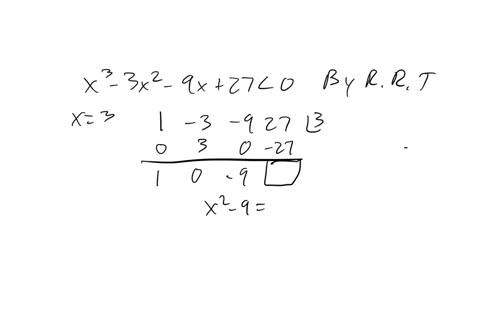 x³-3x²-9x+27<0 By R.R.T
x=3 1 -3 -9 27 ⌊3
0 3 0 -27
1 0 -9
x²-9=